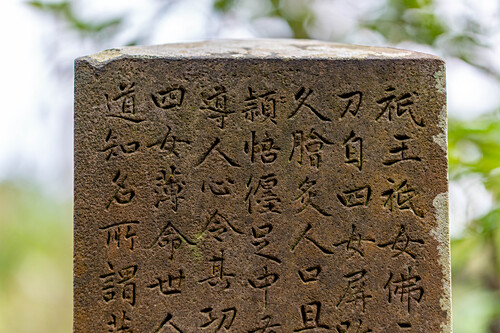 祇王祇女佛
刀自四女屏
久膾炙人口且
悟足中
導人心令其切
四女薄命世人
道知名所謂